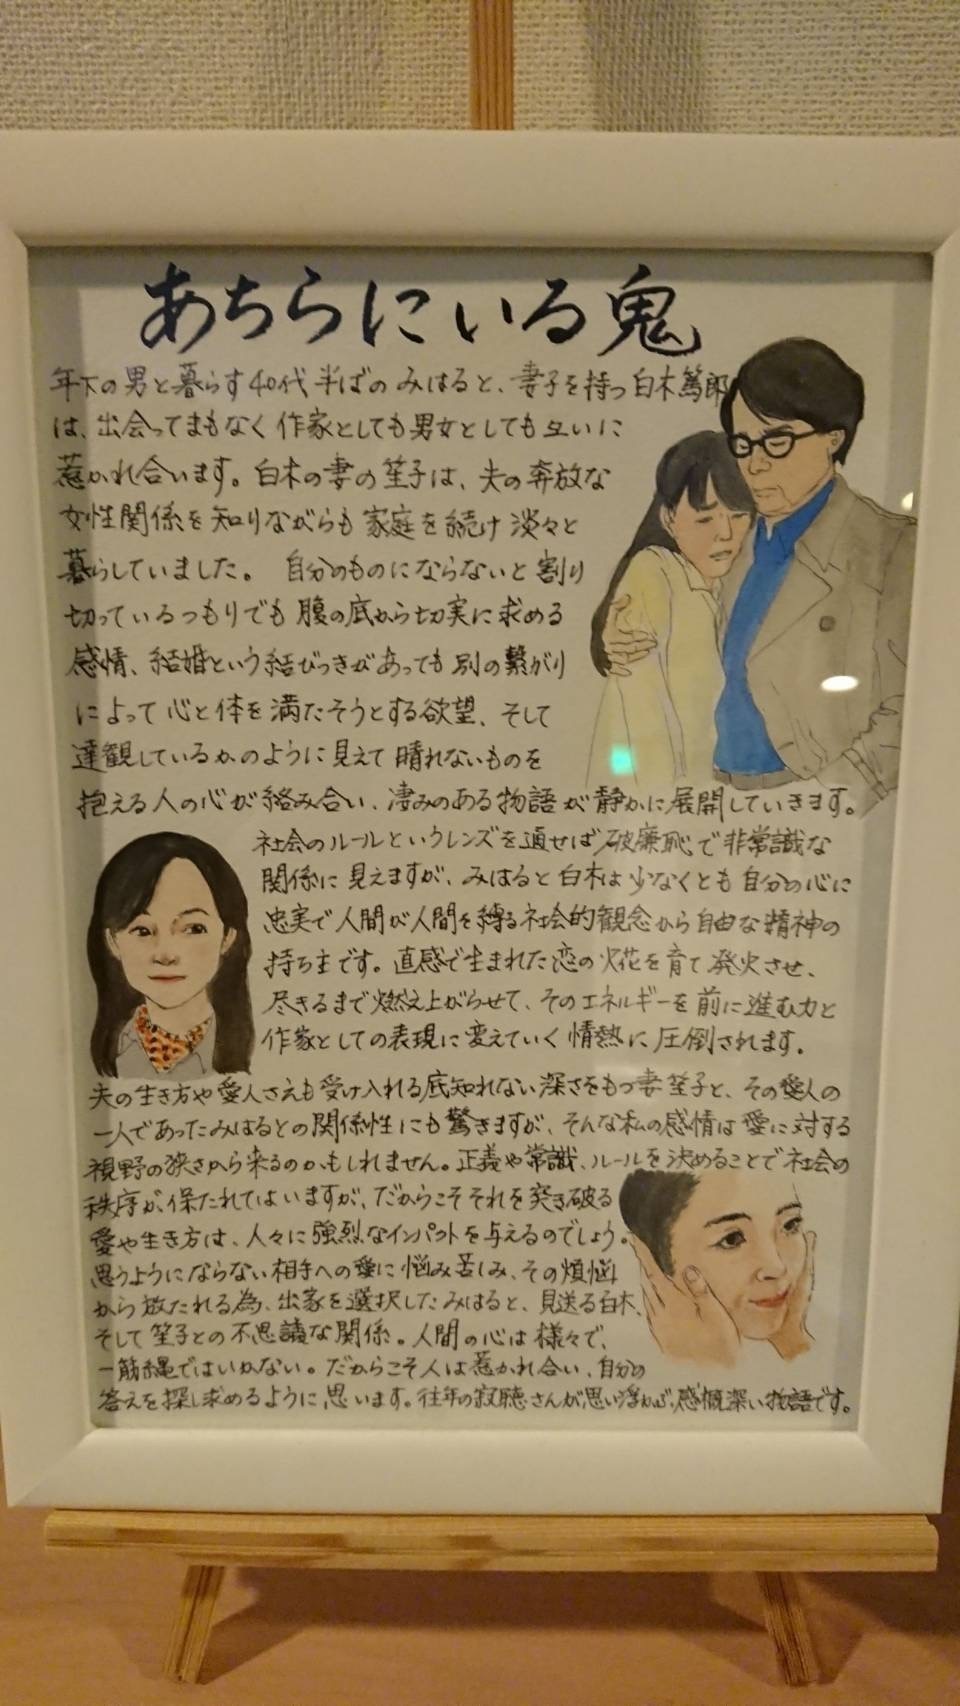 あちらにいる鬼
年下の男と暮らす40代半ばのみはると、妻子を持つ白木篤郎
は、出会ってまもなく作家としても男女としても互いに
惹かれ合います。白木の妻の笙子は、夫の奔放な
女性関係を知りながらも家庭を続け淡々と
暮らしていました。自分のものにならないと割り
切っているつもりでも腹の底から切実に求める
感情、結婚という結びつきがあっても別の繋がり
によって心と体を満たそうとする欲望、そして
達観しているかのように見えて晴れないものを
抱える人の心が絡み合い、凄みのある物語が静かに展開していきます。
社会のルールというレンズを通せば破廉恥で非常識な
関係に見えますが、みはると白木は少なくとも自分の心に
忠実で人間が人間を縛る社会的観念から自由な精神の
持ち主です。直感で生まれた恋の火花を育て発火させ、
尽きるまで燃え上がらせて、そのエネルギーを前に進む力と
作家としての表現に変えていく情熱に圧倒されます。
夫の生き方や愛人さえも受け入れる底知れない深さをもつ妻笙子と、その愛人の
一人であったみはるとの関係性にも驚きますが、そんな私の感情は愛に対する
視野の狭さから来るのかもしれません。正義や常識、ルールを決めることで社会の
秩序が保たれてはいますが、だからこそそれを突き破る
愛や生き方は、人々に強烈なインパクトを与えるのでしょう。
思うようにならない相手への愛に悩み苦しみ、その煩悩
から放たれる為、出家を選択したみはると、見送る白木、
そして笙子との不思議な関係。人間の心は様々で、
一筋縄ではいかない。だからこそ人は惹かれ合い、自分の
答えを探し求めるように思います。往年の寂聴さんが思い浮かぶ、感慨深い物語です。